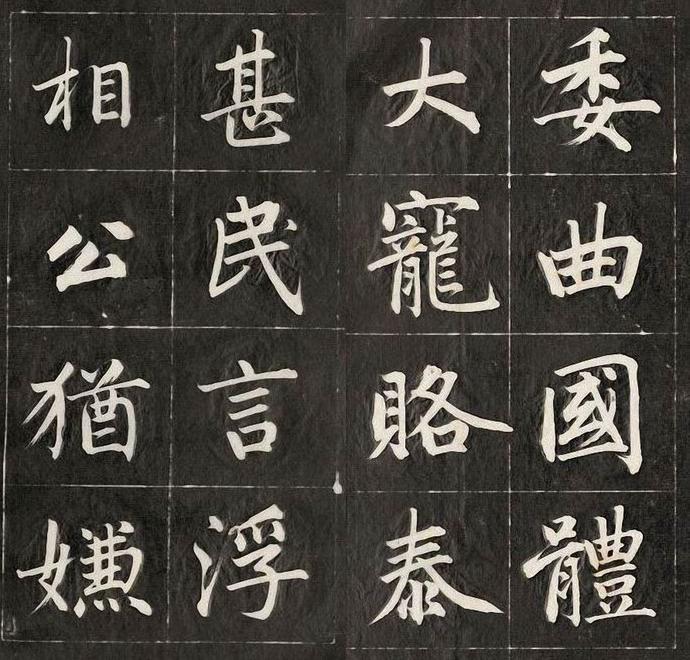 委曲國體
大寵賂泰
甚民言浮
相公猶嫌